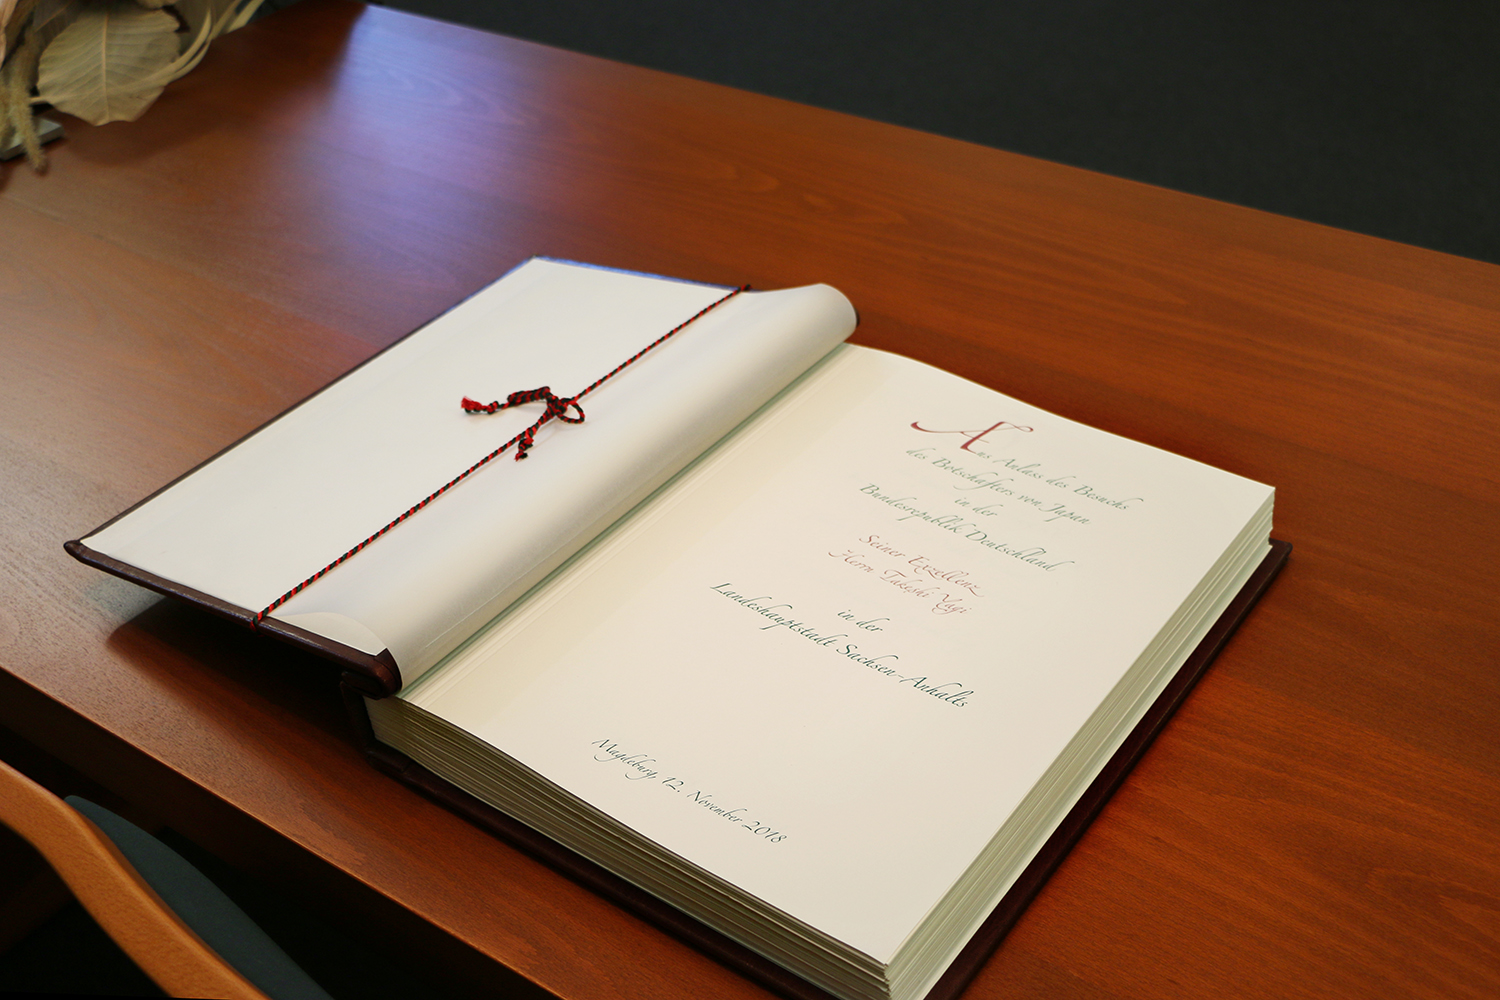 Aus Anlass des Besuchs
des Botschafters von Japan
in der
Bundesrepublik Deutschland
Seiner Exzellenz
Herrn Takeshi Yagi
in der
Landeshauptstadt Sachsen-Anhalts
Magdeburg, 12. November 2018